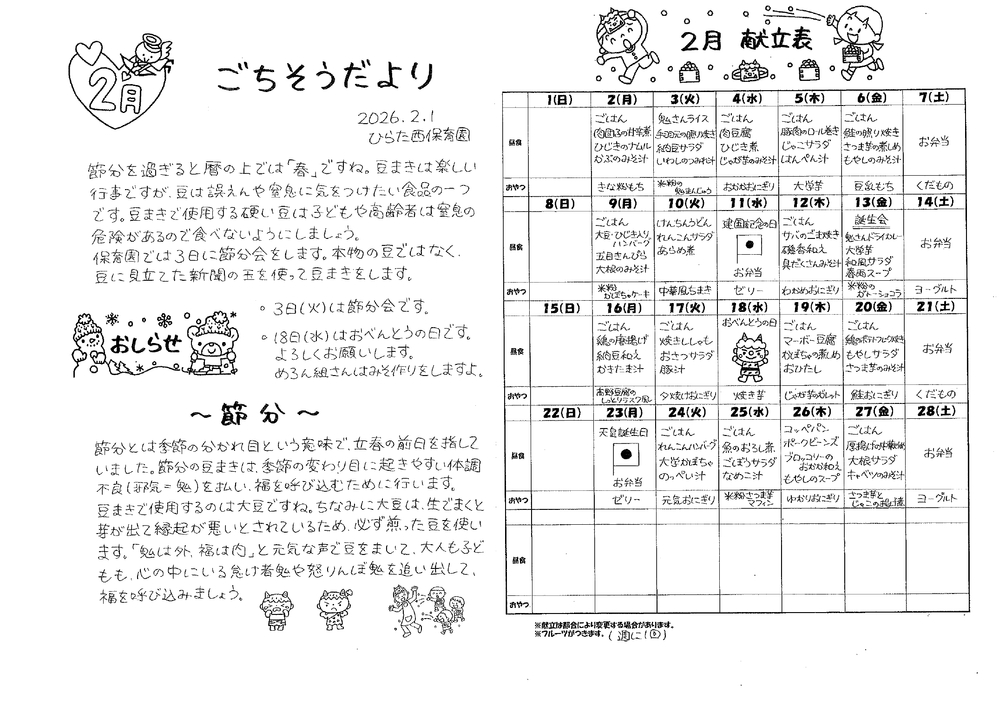 2月
ごちそうだより
2026.2.1
ひらた西保育園
節分を過ぎると暦の上では「春」ですね。豆まきは楽しい
行事ですが、豆は誤えんや窒息に気をつけたい食品の一つ
です。豆まきで使用する硬い豆は子どもや高齢者は窒息の
危険があるので食べないようにしましょう。
保育園では3日に節分会をします。本物の豆ではなく、
豆に見立てた新聞の玉を使って豆まきをします。
おしらせ
。3日(火)は節分会です。
。18日(水)はおべんとうの日です。
よろしくお願いします。
めろん組さんはみそ作りをしますよ。
～節分～
節分とは季節の分かれ目という意味で、立春の前日を指して
いました。節分の豆まきは、季節の変わり目に起きやすい体調
不良(邪気=鬼)を払い、福を呼び込むために行います。
豆まきで使用するのは大豆ですね。ちなみに大豆は、生でまくと
芽が出て縁起が悪いとされているため、必ず煎った豆を使い
ます。「鬼は外、福は内」と元気な声で豆をまいて、大人も子ど
もも、心の中にいる怠け者鬼や怒りんぼ鬼を追い出して、
福を呼び込みましょう。
2月 献立表
1(日) 2(月) 3(火) 4(水) 5(木) 6(金) 7(土)
昼食
ごはん
肉団子の甘酢煮
ひじきのナムル
かぶのみそ汁
鬼さんライス
手羽元の照り焼き
納豆サラダ
いわしのつみれ汁
ごはん
肉豆腐
ひじき煮
じゃが芋のみそ汁
ごはん
豚肉のロール巻き
じゃこサラダ
はんぺん汁
ごはん
鮭の照り焼き
さつま芋の煮め
もやしのみそ汁
お弁当
おやつ
きな粉もち
※米粉の
鬼まんじゅう
おかかおにぎり
大学芋
豆乳もち
くだもの
8(日) 9(月) 10(火) 11(水) 12(木) 13(金) 14(土)
昼食
ごはん
大豆・ひじき入り
ハンバーグ
五目きんぴら
大根のみそ汁
けんちんうどん
れんこんサラダ
あらめ煮
建国記念の日
お弁当
ごはん
サバのごま焼き
磯香和え
具だくさんみそ汁
誕生会
鬼さんドライカレー
大学芋
和風サラダ
春雨スープ
お弁当
おやつ
※米粉
かぼちゃケーキ
中華風ちまき
ゼリー
わかめおにぎり
※米粉の
ガトーショコラ
ヨーグルト
15(日) 16(月) 17(火) 18(水) 19(木) 20(金) 21(土)
昼食
ごはん
鶏の唐揚げ
納豆和え
かきたま汁
ごはん
焼きししゃも
おさつサラダ
豚汁
おべんとうの日
ごはん
マーボー豆腐
かぼちゃの煮め
おひたし
ごはん
鶏のポテトフレーク焼き
もやしサラダ
さつま芋のみそ汁
お弁当
おやつ
高野豆腐の
しっとりラスク風
夕焼けおにぎり
焼き芋
じゃが芋のガレット
鮭おにぎり
くだもの
22(日) 23(月) 24(火) 25(水) 26(木) 27(金) 28(土)
昼食
天皇誕生日
お弁当
ごはん
れんこんハンバーグ
大学かぼちゃ
のっぺい汁
ごはん
魚のおろし煮
ごぼうサラダ
なめこ汁
コッペパン
ポークビーンズ
ブロッコリーの
おかか和え
もやしのスープ
ごはん
厚揚げの中華炒め
大根サラダ
キャベツのみそ汁
お弁当
おやつ
ゼリー
元気おにぎり
※米粉さつま芋
マフィン
ゆかりおにぎり
さつま芋と
じゃこの揚げ煮
ヨーグルト
昼食
おやつ
※献立は都合により変更する場合があります。
※フルーツがつきます。(週に1回)